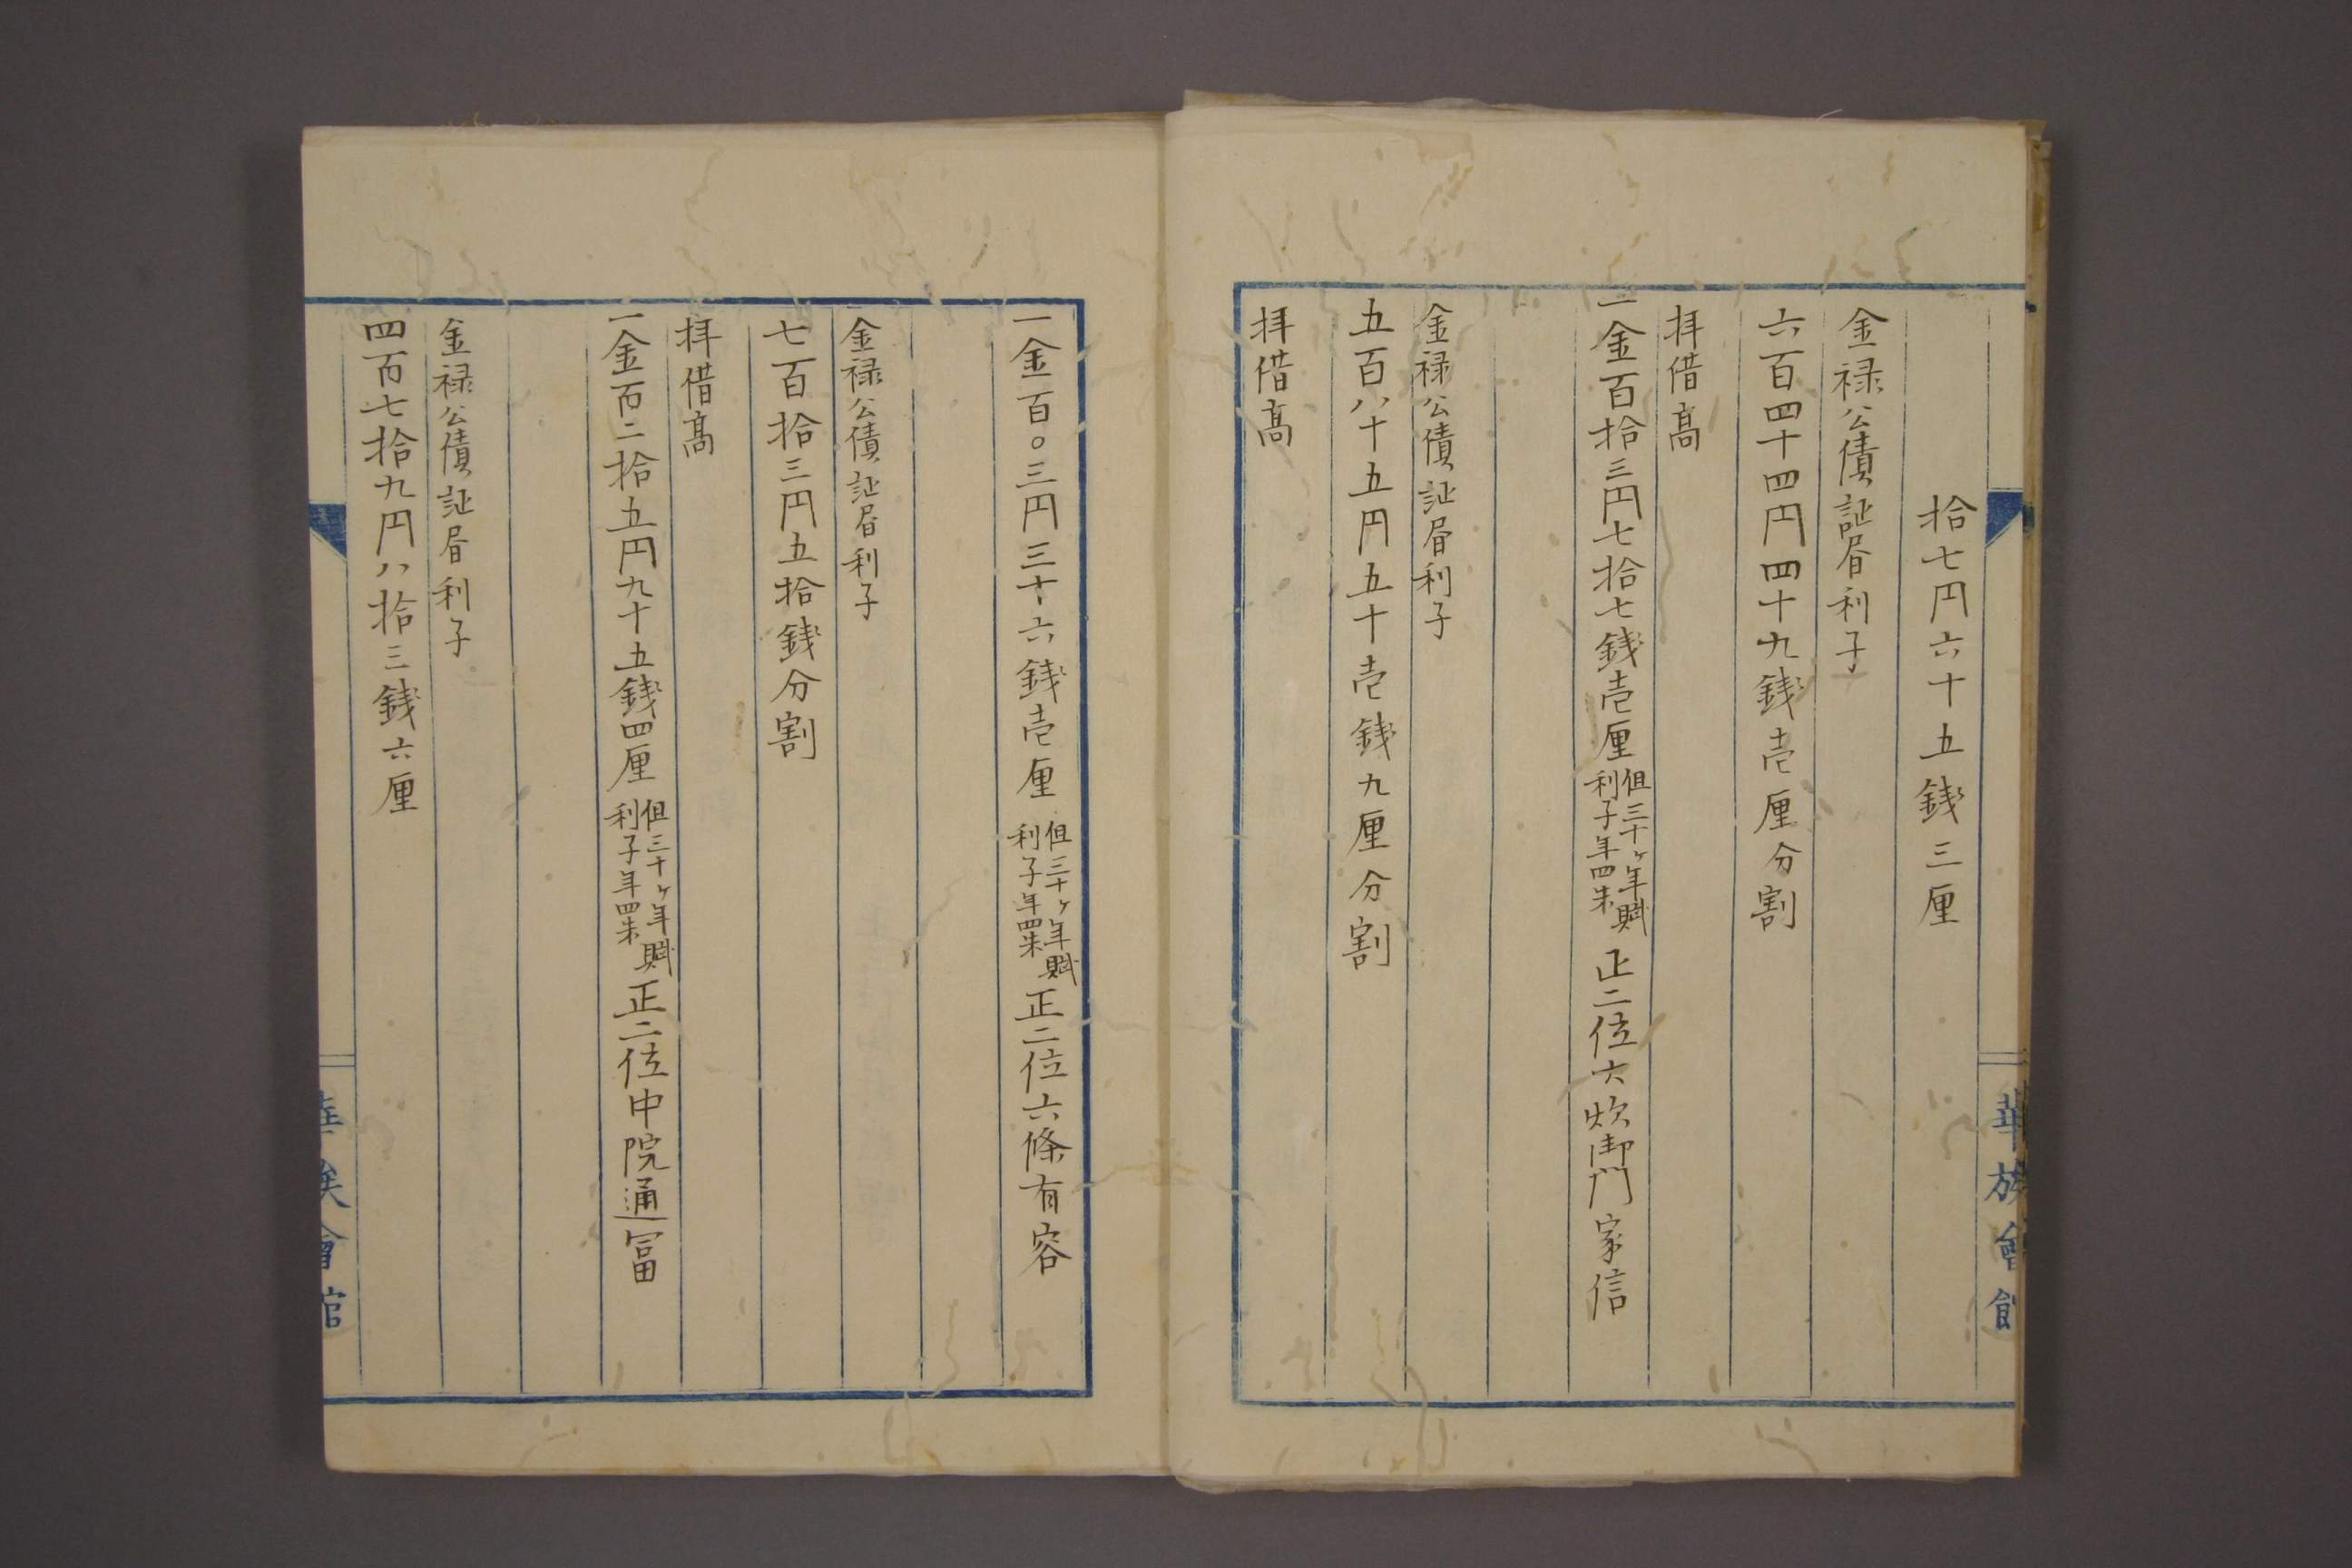 華族會館
拾七円六十五銭三厘
金禄公債証書利子
六百四十四円四十九銭壱厘分割
拝借髙
一金百拾三円七拾七銭壱厘 但三十ヶ年賦 利子年四朱 正二位大炊御門家信
金禄公債証書利子
五百八十五円五十壱銭九厘分割
拝借髙
一金百〇三円三十六銭壱厘 但三十ヶ年賦 利子年四朱 正二位六條有容
金禄公債証書利子
七百拾三円五拾銭分割
拝借髙
一金百二拾五円九十五銭四厘 但三十ヶ年賦 利子年四朱 正二位中院通冨
金禄公債証書利子
四百七拾九円八拾三銭六厘
華族會館